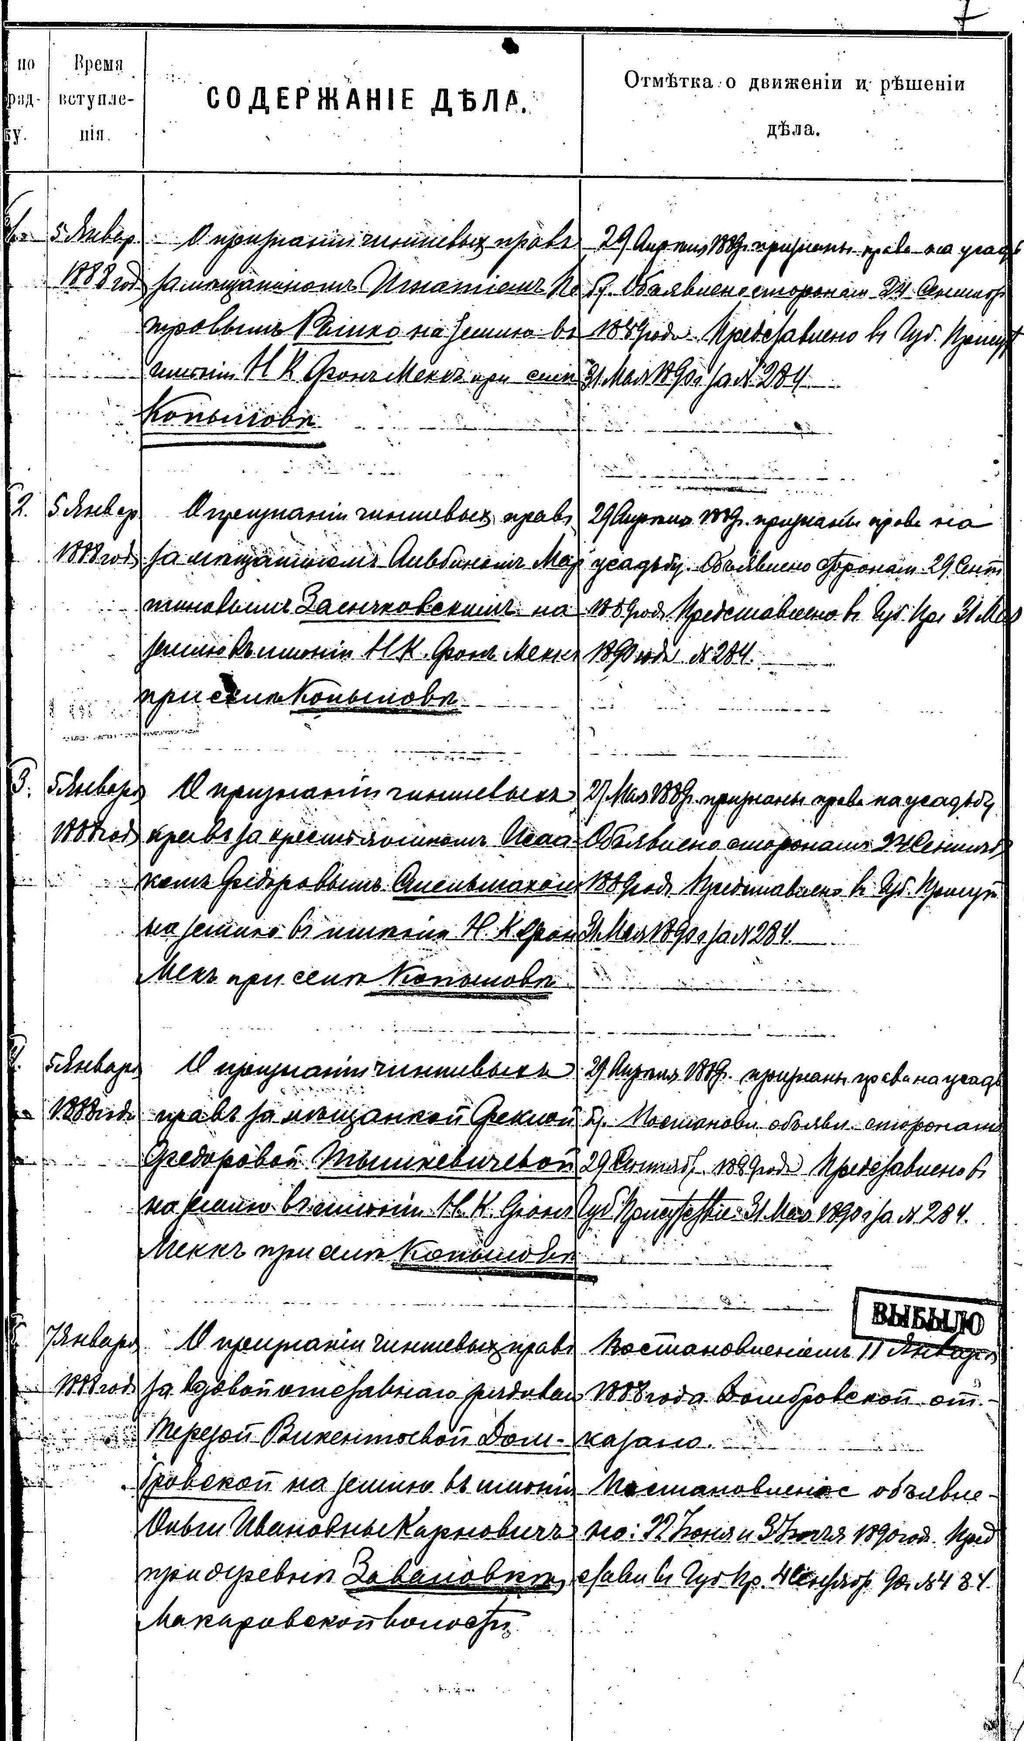 7
по ряд- ку.
Время вступле- нія.
СОДЕРЖАНІЕ ДѢЛА.
Отмѣтка о движеніи и рѣшеніи
дѣла.
1.
5 Январ
1888 год
О признаніи чиншевыхъ правъ
за мѣщаниномъ Игнатіемъ Пе
тровымъ на землю въ
имѣніи Н К Фонъ Меккъ при селѣ
Копыловѣ
29 Апрѣля 1889 г. признаны права на усадь
бу. Объявлено сторонам 24 Сентябр
1889 года. Представлено въ Губ. Присут
31 Мая 1890 г за № 284.
2.
5 Январ
1888 год
О признаніи чиншевыхъ правъ
за мѣщаниномъ Альбиномъ Мар
тиновымъ Заенчковскимъ на
землю въ имѣніи Н К. Фонъ Меккъ
при селѣ Копыловѣ
29 Апрѣля 1889 г. признаны права на
усадьбу. Объявлено сторонам 29 Сент
1889 года Представлено въ Губ. При 31 Мая
1890 года № 284.
3.
5 Января
1888 год
О признаніи чиншевыхъ
правъ за крестьяниномъ Исаа-
комъ Федоровымъ
на землю въ имѣніи Н. К Фонъ
Мекъ при селѣ Копыловѣ
27 Мая 1889 г. признаны права на усадьбу
Объявлено сторонамъ 24 Сентяб
1889 года Представлено въ Губ. Присут
31 Мая 1890 г за № 284.
4.
5 Января
1888 года
О признаніи чиншевыхъ
правъ за мѣщанкой Феклой
Федоровой Тышкевичевой
на землю въ имѣніи Н. К. Фонъ
Меккъ при селѣ Копыловѣ
29 Апрѣля 1889 г. признаны права на усадь
бу. Постановл. объявл. сторонамъ
29 Сентяб. 1889 года Представлено въ
Губ. Присутствіе 31 Мая 1890 г за № 284.
ВЫБЫЛО
5
7 Января
1888 года
О признаніи чиншевыхъ правъ
за вдовой отставнаго рядовaго
Терезой Викентьевой Дом-
бровской на землю въ имѣніи
Ольги Ивановны Карновичъ
при деревнѣ Заваловкѣ,
Макаровской волости
Постановленіемъ 11 Января
1888 года Домбровской от-
казано.
Постановленіе объявле-
но: 22 Іюня и 3 Іюля 1890 год. Пред
ставл въ Губ Пр. 4 Сентябр 90 г № 484.